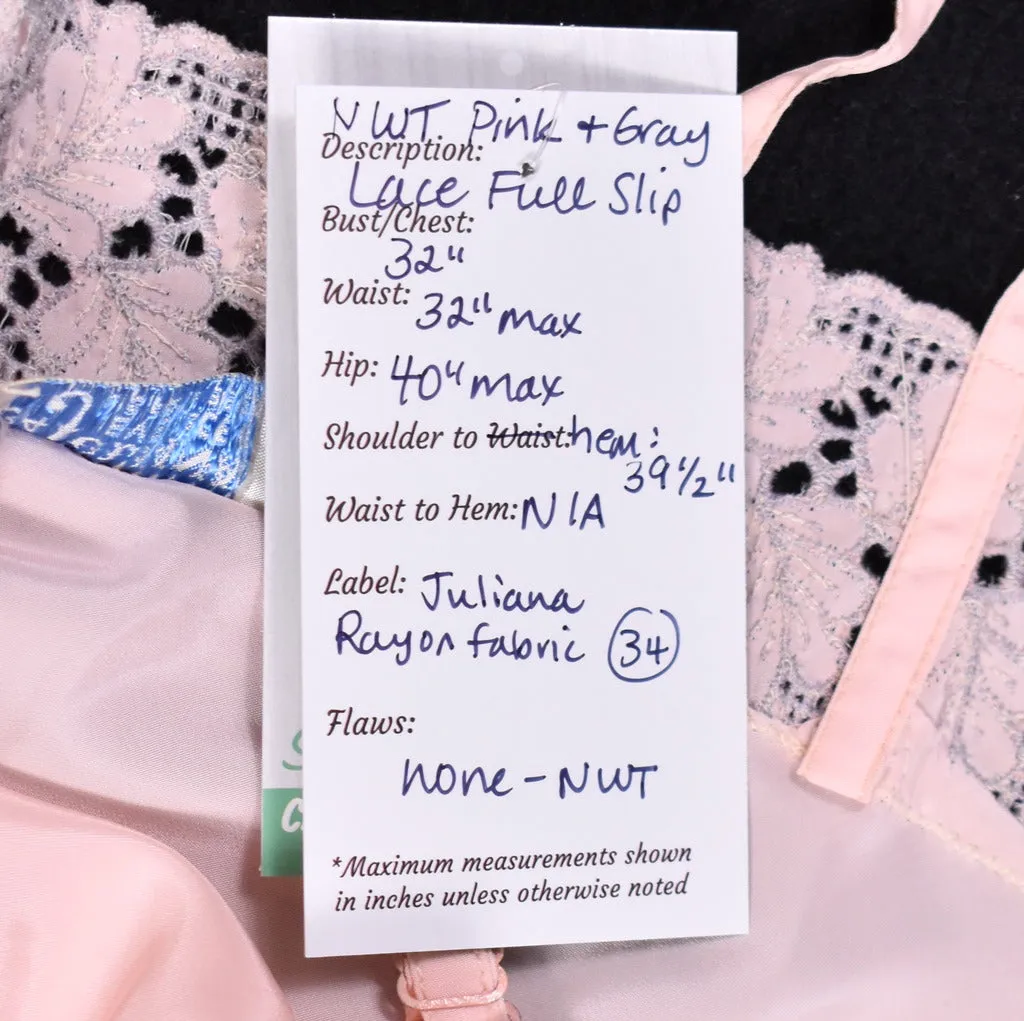 NWT. Pink + Gray
Description:
Lace Full Slip
Bust/Chest:
32"
Waist: 32" max
Hip: 40" max
Shoulder to Waist: hem:
39 1/2"
Waist to Hem: N/A
Label: Juliana
Rayon fabric 34
Flaws:
none - NWT
*Maximum measurements shown
in inches unless otherwise noted